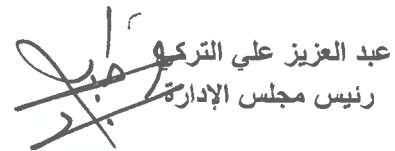 عبد العزيز علي التركي
رئيس مجلس الإدارة